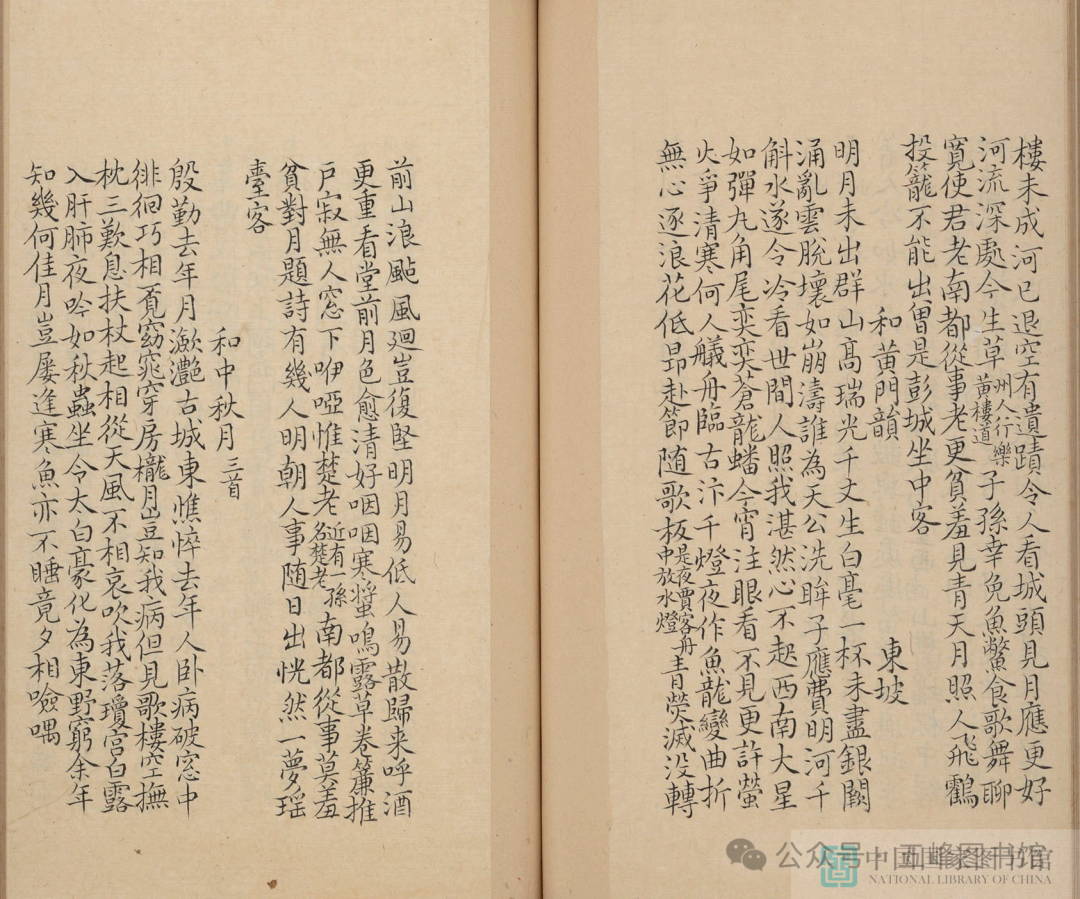 樓未成河已退空有遺蹟令人看城頭見月應更好
河流深處今生草州人行樂黃樓道子孫幸免魚鱉食歌舞聊
寬使君老南都從事老更貧羞見青天月照人飛鶴
投籠不能出曾是彭城坐中客
和黃門韻 東坡
明月未出群山高瑞光千丈生白毫一杯未盡銀闕
涌亂雲脫壞如崩濤誰為天公洗眸子應費明河千
斛水遂令冷看世間人照我湛然心不起西南大星
如彈丸角尾奕奕蒼龍蟠今宵注眼看不見更許螢
火爭清寒何人艤舟臨古汴千燈夜作魚龍變曲折
無心逐浪花低昂赴節随歌板是夜賈客舟中放水燈青熒滅没轉
前山浪颭風廻豈復堅明月易低人易散歸来呼酒
更重看堂前月色愈清好咽咽寒螿鳴露草卷簾推
戶寂無人窓下咿啞惟楚老近有一孫名楚老南都從事莫羞
貧對月題詩有幾人明朝人事随日出恍然一夢瑶
臺客
和中秋月三首
殷勤去年月瀲灩古城東憔悴去年人卧病破窓中
徘徊巧相覔窈窕穿房櫳月豈知我病但見歌樓空撫
枕三歎息扶杖起相從天風不相哀吹我落瓊宮白露
入肝肺夜吟如秋蟲坐令太白豪化為東野窮余年
知幾何佳月豈屢逢寒魚亦不睡竟夕相噞喁
公众号·西峰图书馆
中国国家图书馆
NATIONAL LIBRARY OF CHINA